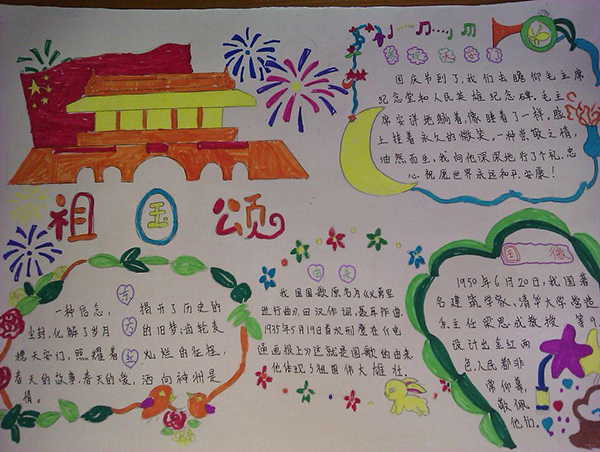 祖国颂
首都天安门
国庆节到了,我们去瞻仰毛主席
纪念堂和人民英雄纪念碑。毛主
席安详地躺着,像睡着了一样。脸
上挂着永久的微笑,一种崇敬之情,
油然而生。我向他深深地行了个礼,忠
心祝愿世界永远和平,安康!
一种信念,
揭开了历史的
尘封,化解了岁月
的旧梦,齿轮表
穗天安门,照耀着
灿烂的征程,
春天的故事,春天的
洒向神州是
情。
由来
我国国歌原名为《义勇军
进行曲》。田汉作词,聂耳作曲。
1935年5月19日首次刊登在《电
通画报上》这就是国歌的由来
他体现了祖国伟大雄壮。
国徽
1950年6月20日,我国著
名建筑学家、清华大学
系主任梁思成教授 等9
设计出金红两
色,人民都非
常仰慕,
敬佩
他们。